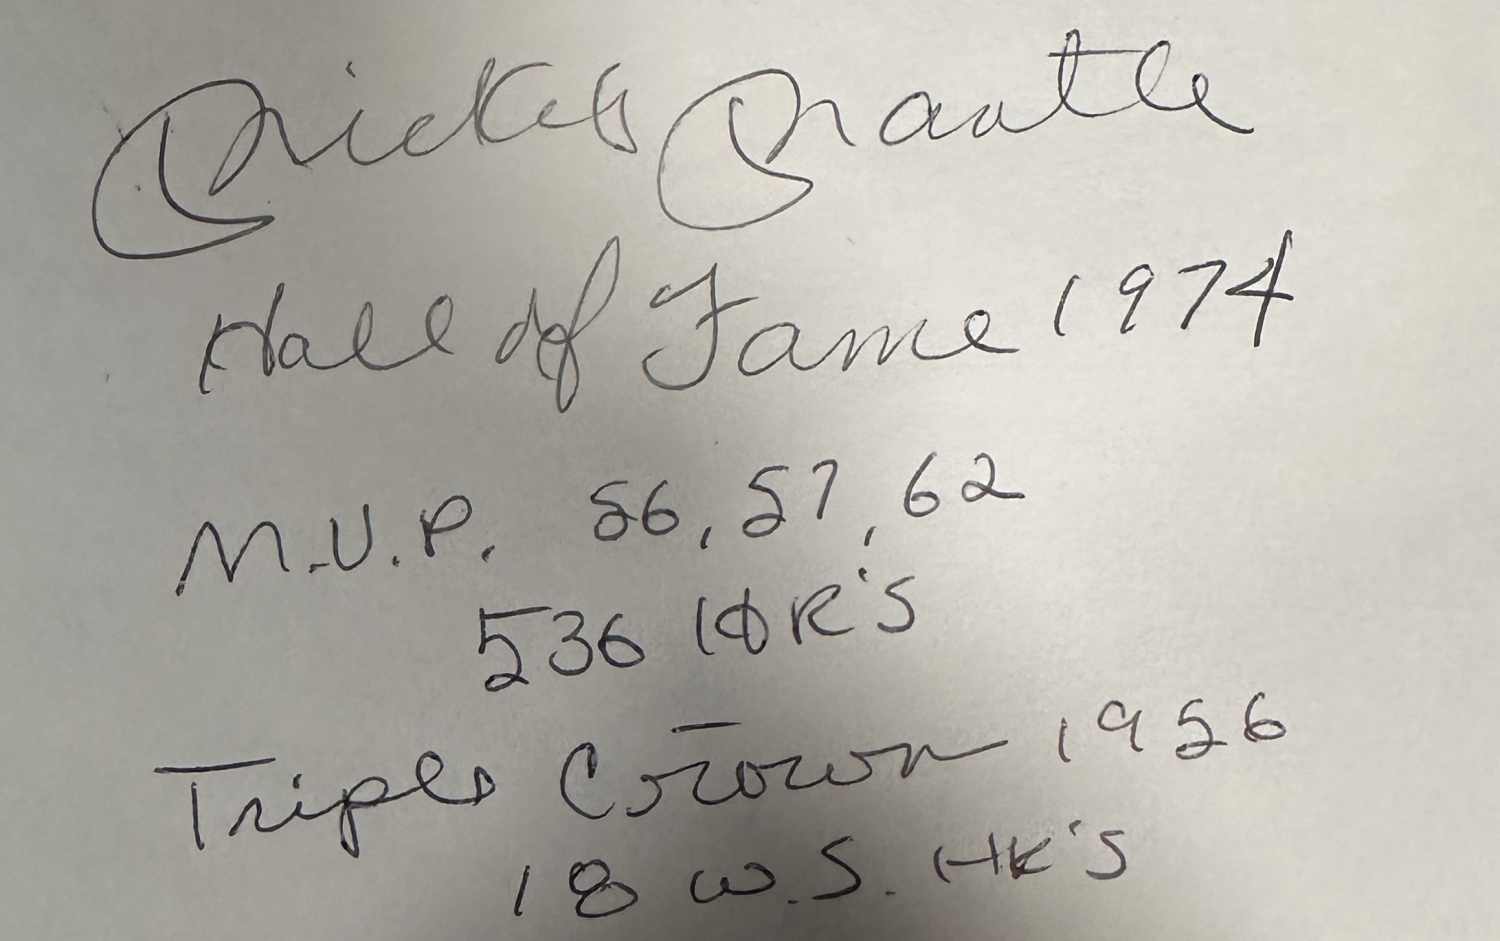 Mickey Mantle
Hall of Fame 1974
M.V.P. 56, 57, 62
536 HR's
Triple Crown 1956
18 W.S. HR's